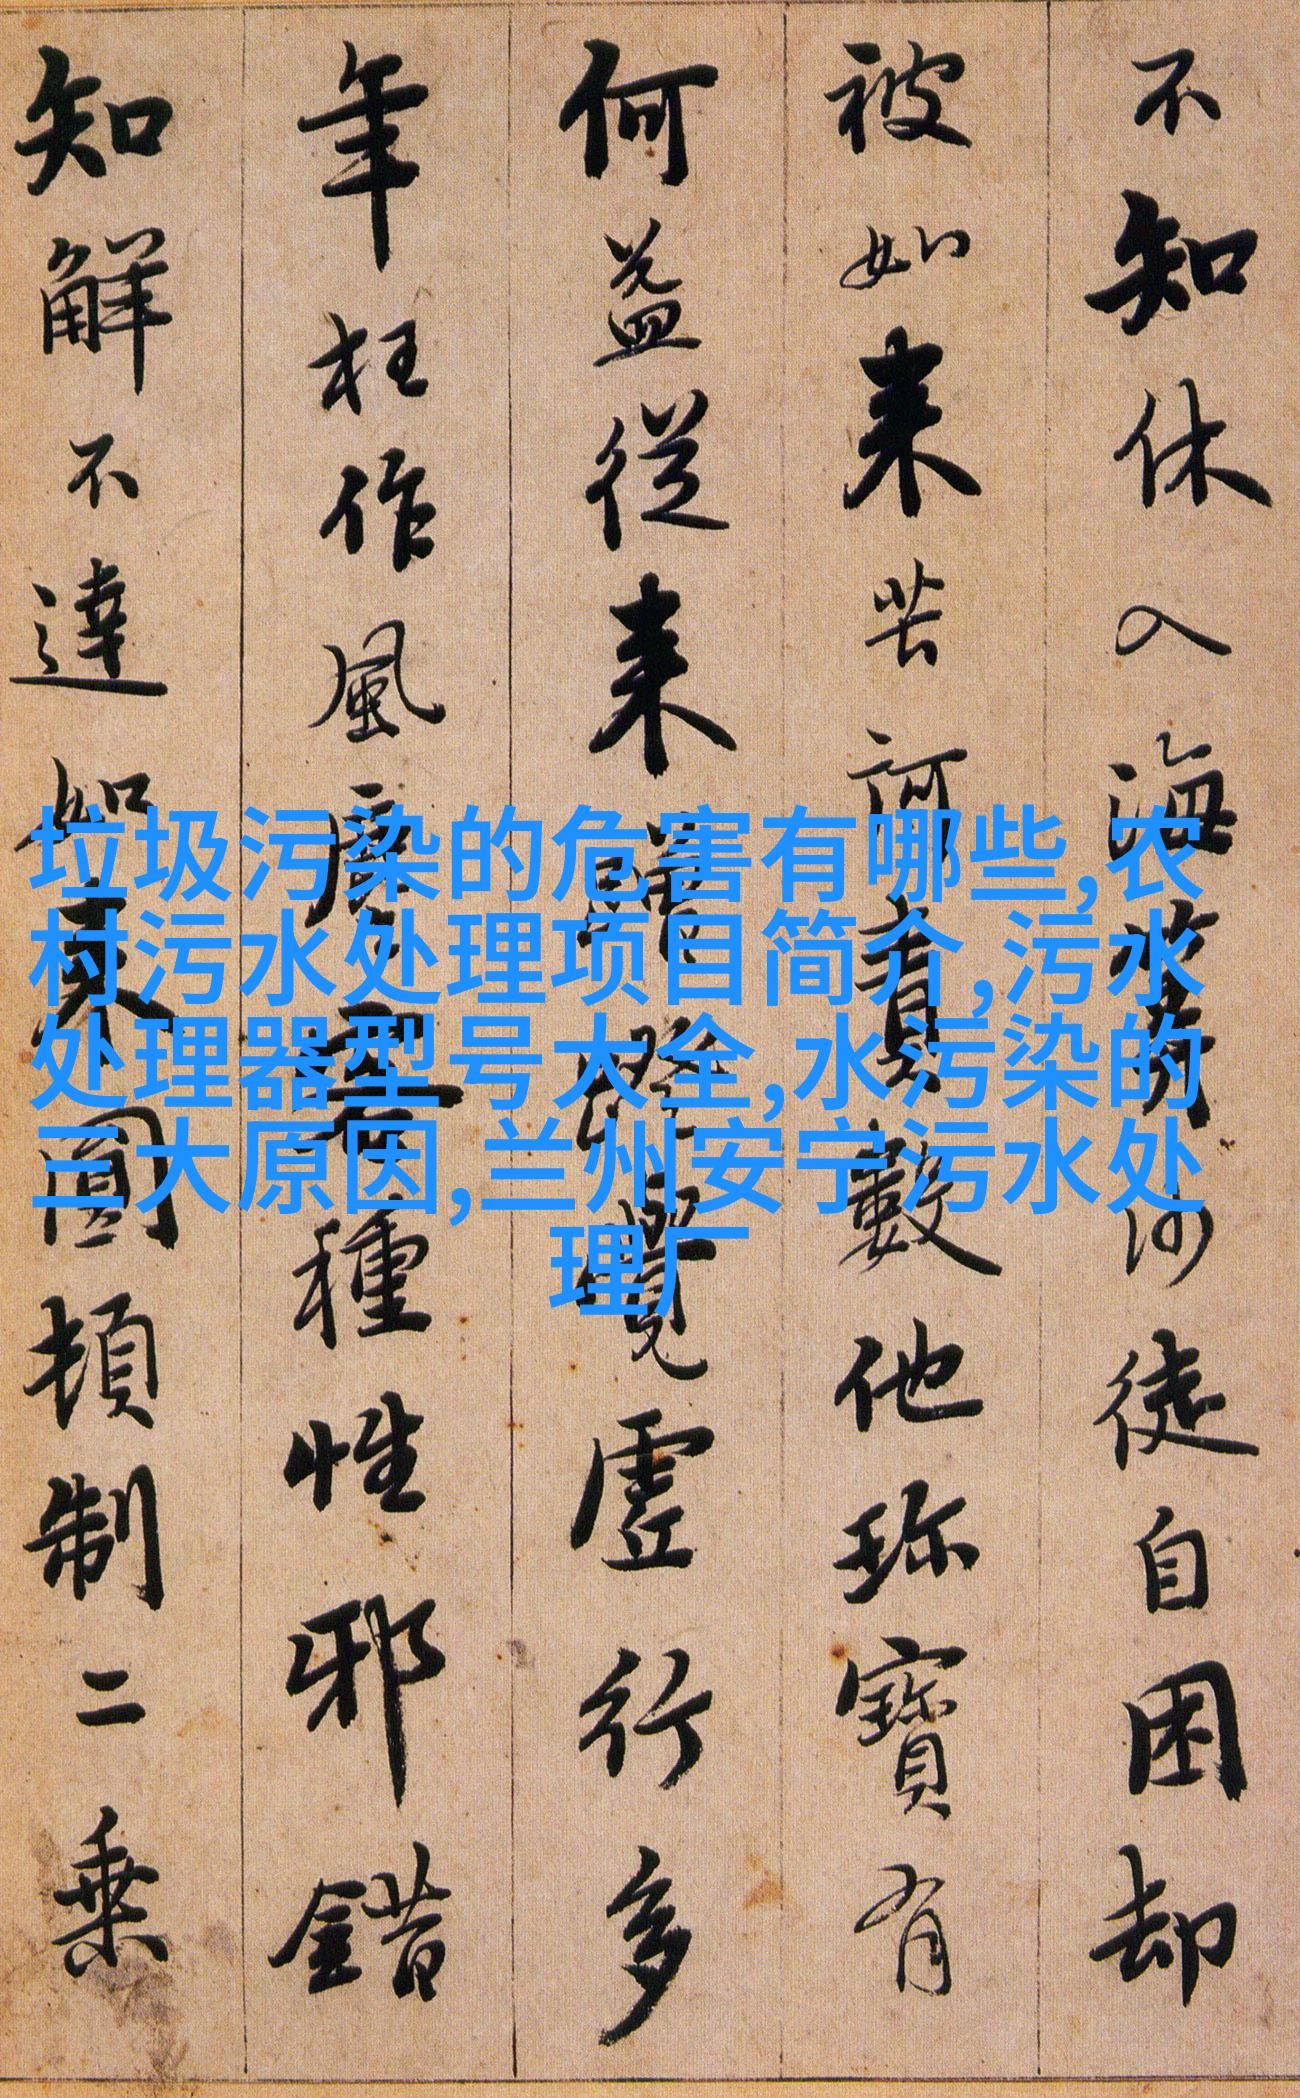 不知休入海筭沙徒自困却
被如来苦訶責數他珎寶有
何益從来蹭蹬覺虛行多
年枉作風塵客種性邪錯
知解不達如来圓頓制二乘
垃圾污染的危害有哪些,农
村污水处理项目简介,污水
处理器型号大全,水污染的
三大原因,兰州安宁污水处
理厂